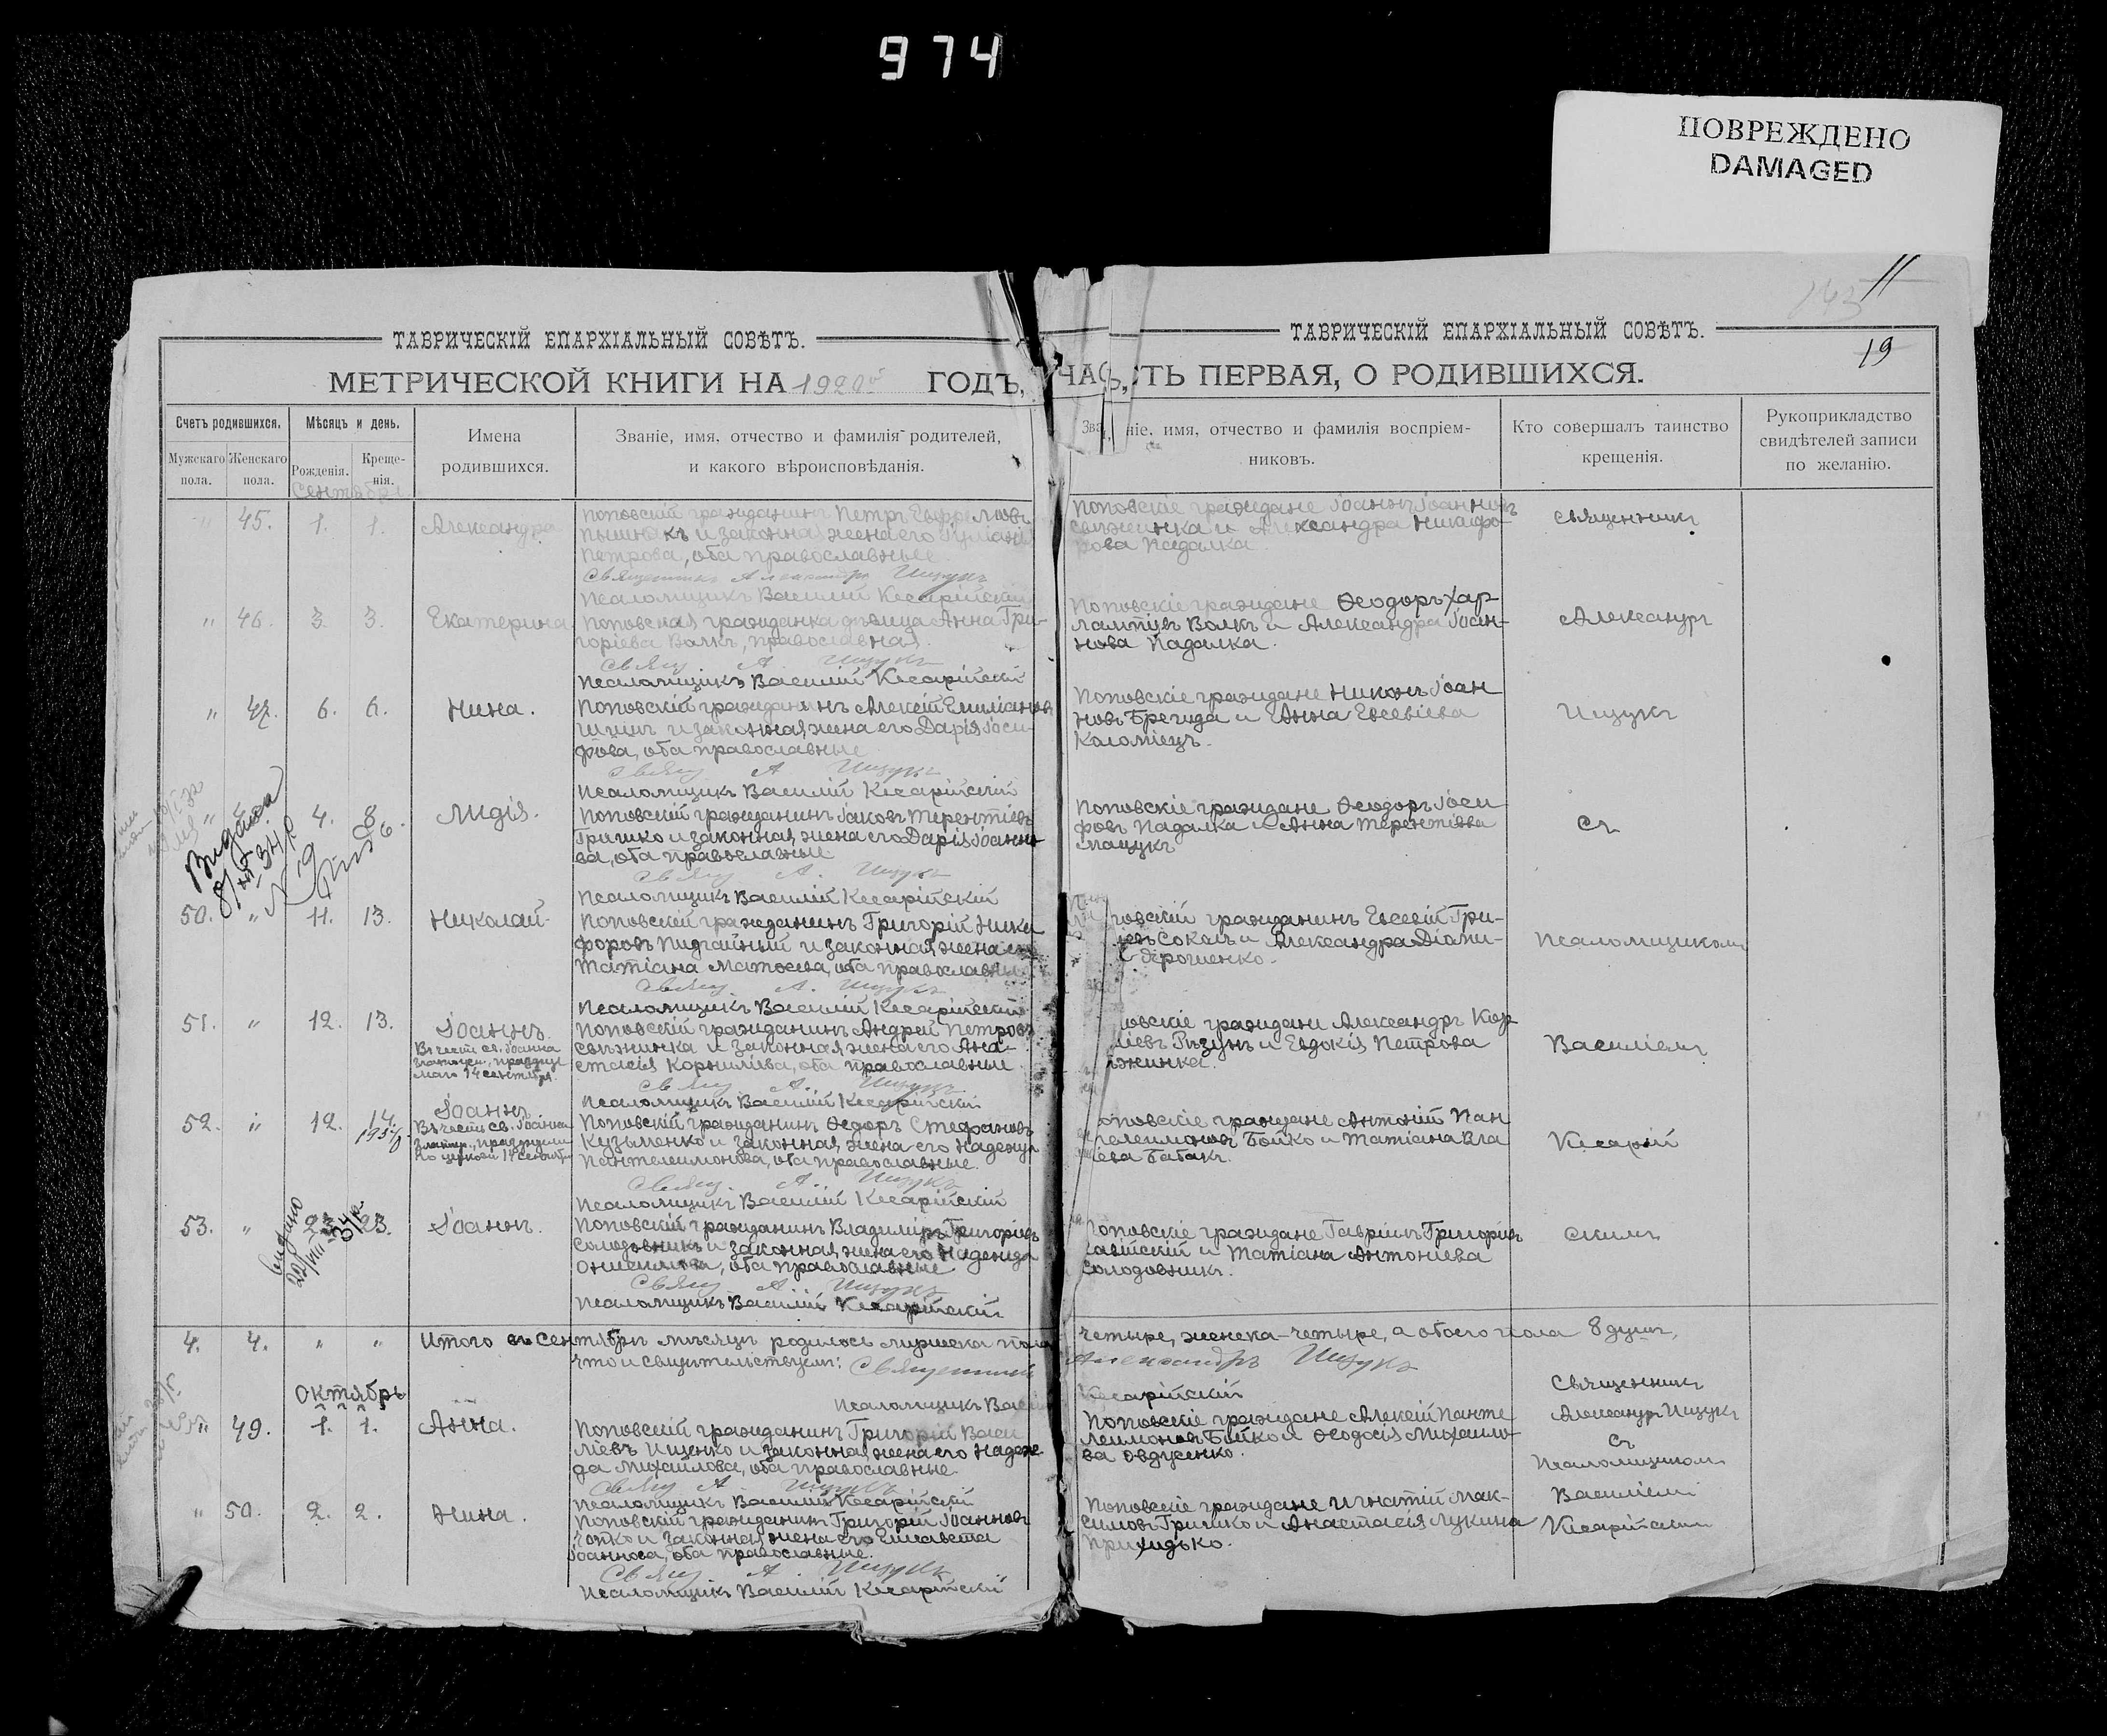 974
ПОВРЕЖДЕНО
DAMAGED
11
143
19
ТАВРИЧЕСКІЙ ЕПАРХІАЛЬНЫЙ СОВѢТЪ.
МЕТРИЧЕСКОЙ КНИГИ НА 1920й ГОДЪ,
Счетъ родившихся.
Мѣсяцъ и день.
Имена
родившихся.
Званіе, имя, отчество и фамилія родителей,
и какого вѣроисповѣданія.
Мужскаго
пола.
Женскаго
пола.
Рожденія.
Креще-
нія.
Сентябрь
" 45. 1. 1. Александра
Поповскій гражданинъ Петръ
и законная жена его
Петрова, оба православные
Священникъ Александръ Ищукъ
Псаломщикъ Василій Кесарійскій
" 46. 3. 3. Екатерина
Поповская гражданка дѣвица Анна Гри-
горіева Волкъ, православная.
Свящ. А. Ищукъ
Псаломщикъ Василій Кесарійскій
" 47. 6. 6. Нина.
Поповскій гражданинъ Алексій Емиліановъ
и законная жена его Дарія Іоси-
фова, оба православные
Свящ. А. Ищукъ
Псаломщикъ Василій Кесарійскій
" 4. 8. Лидія.
Поповскій гражданинъ Іаковъ Терентіевъ
Гричко и законная жена его Дарія Іоанно-
ва, оба православные
Свящ. А. Ищукъ
Псаломщикъ Василій Кесарійскій
50. " 11. 13. Николай
Поповскій гражданинъ Григорій Ники
форовъ Пидгайный и законная жена его
Татіана Матѳеева, оба православные
Свящ. А. Ищукъ
Псаломщикъ Василій Кесарійскій
51. " 12. 13. Іоаннъ.
Въ честь св. Іоанна
14 сентября.
Поповскій гражданинъ Андрей Петровъ
Свѣжинка и законная жена его Ана-
стасія Корниліева, оба православные
Свящ. А. Ищукъ
Псаломщикъ Василій Кесарійскій
52. " 12. 14. Іоаннъ
Въ честь св. Іоанна
14 сентября
Поповскій гражданинъ Ѳеодоръ Стефановъ
Кузьменко и законная жена его Надежда
Пантелеимонова, оба православные.
Свящ. А. Ищукъ
Псаломщикъ Василій Кесарійскій
Видано
53. " 23. 23. Іоаннъ.
Поповскій гражданинъ Владиміръ Григоріевъ
Солодовникъ и законная жена его Надежда
Онисимова, оба православные
Свящ. А. Ищукъ
Псаломщикъ Василій Кесарійскій
4. 4. " " Итого въ Сентябрѣ мѣсяцѣ родилось мужска пола
что и свидѣтельствуемъ: Священникъ
Псаломщикъ Василій
Октябрь
" 49. 1. 1. Анна.
Поповскій гражданинъ Григорій Васи
ліевъ Ищенко и законная жена его Надеж-
да Михайлова, оба православные
Свящ. А. Ищукъ
Псаломщикъ Василій Кесарійскій
" 50. 2. 2. Нина.
Поповскій гражданинъ Григорій Іоанновъ
и законная жена его Елисавета
Іоаннова, оба православные.
Свящ. А. Ищукъ
Псаломщикъ Василій Кесарійскій
ТАВРИЧЕСКІЙ ЕПАРХІАЛЬНЫЙ СОВѢТЪ.
ЧАСТЬ ПЕРВАЯ, О РОДИВШИХСЯ.
ніе, имя, отчество и фамилія воспріем-
никовъ.
Кто совершалъ таинство
крещенія.
Рукоприкладство
свидѣтелей записи
по желанію.
Поповскіе граждане Іоаннъ Іоанновъ
Свѣжинка и Александра Никифо-
рова Падалка.
Священникъ
Поповскіе граждане Ѳеодоръ Хар-
лампіевъ Волкъ и Александра Іоан-
нова Падалка.
Александръ
Поповскіе граждане Никонъ Іоан
новъ Брегида и Анна Евсевіева
Коломіецъ.
Ищукъ
Поповскіе граждане Ѳеодоръ Іоси
фовъ Падалка и Анна Терентіева
Съ
повскій гражданинъ Евсевій Гри-
Соколъ и Александра
Псаломщикомъ
повскіе граждани Александръ Кор
ліевъ Рѣзунъ и Евдокія Петрова
жинка.
Василіемъ
оповскіе граждане Антоній Пан
телеимоновъ Бойко и Татіана Вла
ева Бабакъ.
Кесарій
Поповскіе граждане Гавріилъ Григоріевъ
и Татіана Антоніева
Солодовникъ.
скимъ
четыре, женска-четыре, а обоего пола 8 душъ,
Александръ Ищукъ
Кесарійскій
Поповскіе граждане Алексій Панте
леимоновъ Бойко и Ѳеодосія Михаило-
ва Овдіенко.
Священникъ
Александръ Ищукъ
Съ
Псаломщикомъ
Поповскіе граждане Игнатій Мак-
симовъ Гричко и Анастасія Лукина
Приходько.
Василіемъ
Кесарійскимъ